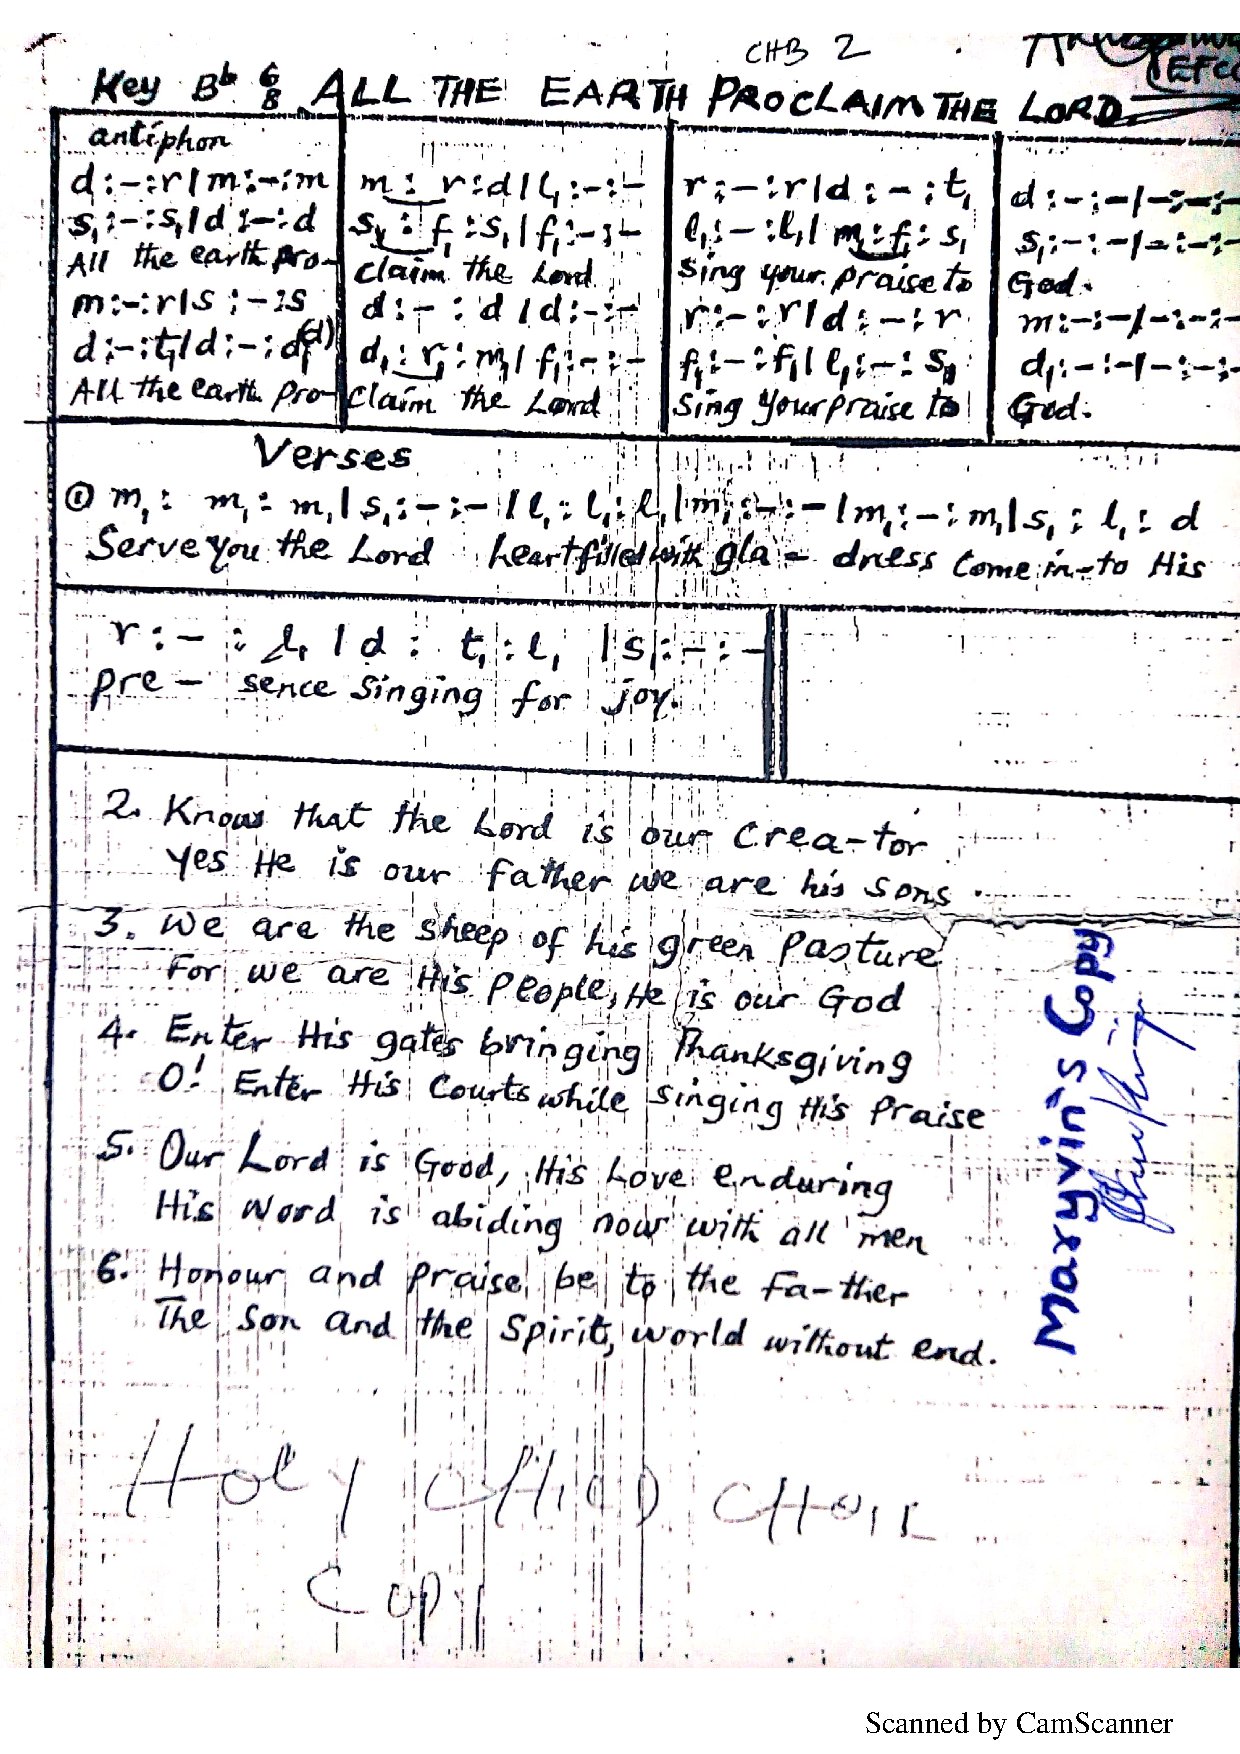 CHB 2
EFCC
Key B♭ 6/8 ALL THE EARTH PROCLAIM THE LORD
antiphon
d:-:r|m:-:m | m:r:d|l₁:-:- | r:-:r|d:-:t₁ | d:-:-|-:-:-
s₁:-:s₁|d:-:d | s₁:f₁:s₁|f₁:-:- | l₁:-:l₁|m₁:f₁:s₁ | s₁:-:-|-:-:-
All the earth pro- | claim the Lord | sing your praise to | God.
m:-:r|s:-:s | d:-:d|d:-:- | r:-:r|d:-:r | m:-:-|-:-:-
d:-:t₁|d:-:d₁(d) | d₁:r₁:m₁|f₁:-:- | f₁:-:f₁|l₁:-:s₁ | d₁:-:-|-:-:-
All the earth pro- | Claim the Lord | Sing your praise to | God.
Verses
① m₁:m₁:m₁|s₁:-:-|l₁:l₁:l₁|m₁:-:-|m₁:-:m₁|s₁:l₁:d
Serve you the Lord heart filled with gla - dness come in-to His
r:-:l₁|d:t₁:l₁|s₁:-:-
pre - sence singing for joy.
2. Know that the Lord is our Crea-tor
Yes He is our father we are his sons.
3. We are the sheep of his green Pasture
For we are His People, He is our God
4. Enter His gates bringing Thanksgiving
O! Enter His Courts while singing His Praise
5. Our Lord is Good, His Love enduring
His Word is abiding now with all men
6. Honour and praise be to the Fa-ther
The Son and the Spirit, world without end.
Maryvin's Copy
HOLY CHILD CHOIR
COPY
Scanned by CamScanner